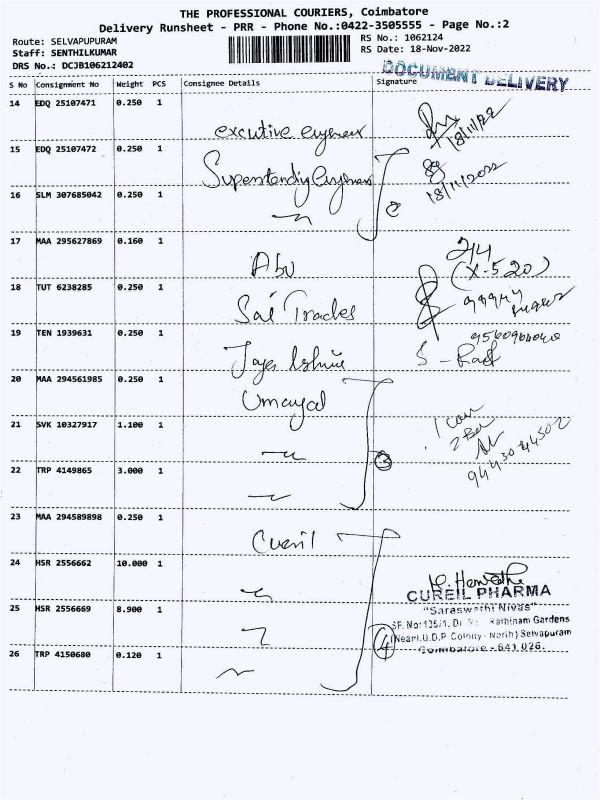 THE PROFESSIONAL COURIERS, Coimbatore
Delivery Runsheet - PRR - Phone No.:0422-3505555 - Page No.:2
Route: SELVAPUPURAM RS No.: 1062124
Staff: SENTHILKUMAR RS Date: 18-Nov-2022
DRS No.: DCJB106212402
DOCUMENT DELIVERY
S No Consignment No Weight PCS Consignee Details Signature
14 EDQ 25107471 0.250 1
excutive engineer 18/11/22
15 EDQ 25107472 0.250 1
18/11/2022
16 SLM 307685042 0.250 1
17 MAA 295627869 0.160 1
Abu (X-520)
18 TUT 6238285 0.250 1
Sai Trades
19 TEN 1939631 0.250 1
20 MAA 294561985 0.250 1
Umayal
21 SVK 10327917 1.100 1
22 TRP 4149865 3.000 1
23 MAA 294589898 0.250 1
24 HSR 2556662 10.000 1
CUREIL PHARMA
"Saraswathi Nivas"
25 HSR 2556669 8.900 1
SF. No:135/1, Rathinam Gardens
(Near) U.D.P. Colony - North) Selvapuram
4
Coimbatore - 641 026.
26 TRP 4150680 0.120 1